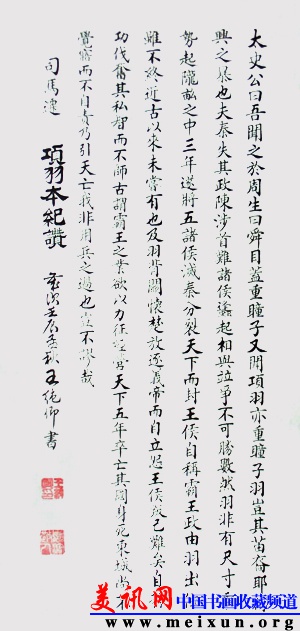 太史公曰吾聞之於周生曰舜目蓋重瞳子又聞項羽亦重瞳子羽豈其苗裔耶
興之暴也夫秦失其政陳涉首難諸侯蠭起相與並爭不可勝數然羽非有尺寸
勢起隴畝之中三年遂將五諸侯滅秦分裂天下而封王侯自稱霸王政由羽出
雖不終近古以來未嘗有也及羽背關懷楚放逐義帝而自立怨王侯叛己難矣自
功伐奮其私智而不師古謂霸王之業欲以力征經營天下五年卒亡其國身死東城尚不
覺寤而不自責乃引天亡我非用兵之過也豈不謬哉
司馬遷 項羽本紀讚 歲次壬辰孟秋 王 仰書
美讯网 中国书画收藏频道
www.meixun.org